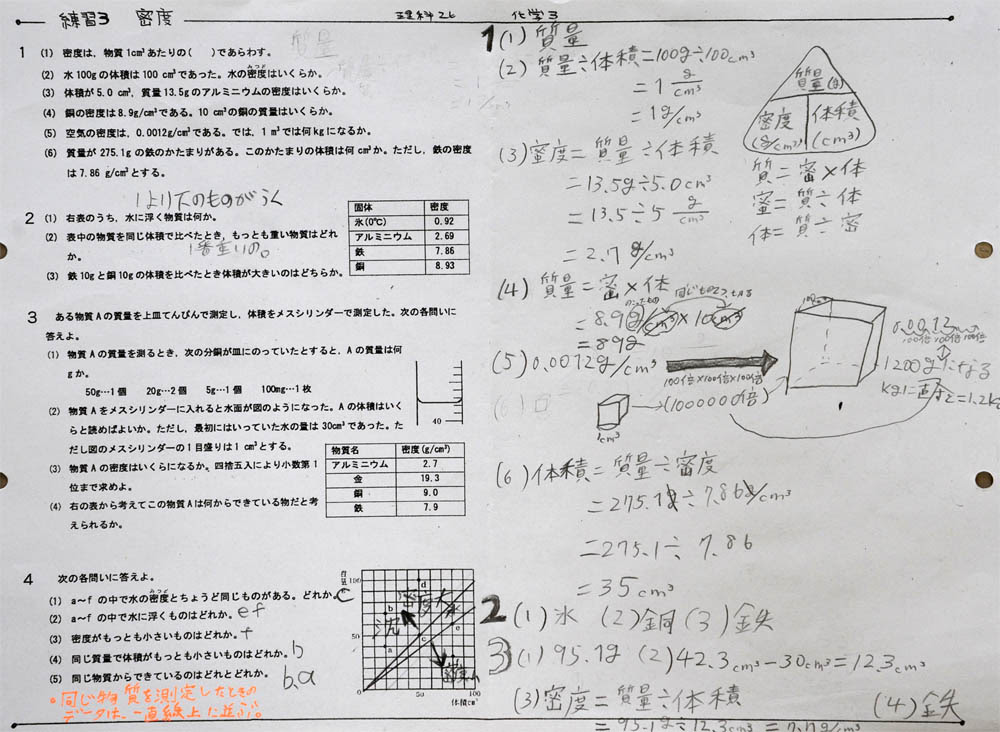 練習3 密度
理科2b 化学3
1 (1) 密度は、物質1cm³あたりの( )であらわす。
(2) 水100gの体積は100 cm³であった。水の密度はいくらか。
(3) 体積が5.0 cm³、質量13.5gのアルミニウムの密度はいくらか。
(4) 銅の密度は8.9g/cm³である。10 cm³の銅の質量はいくらか。
(5) 空気の密度は、0.0012g/cm³である。では、1 m³では何kgになるか。
(6) 質量が275.1gの鉄のかたまりがある。このかたまりの体積は何cm³か。ただし、鉄の密度
は7.86 g/cm³とする。
1より下のものがうく
2 (1) 右表のうち、水に浮く物質は何か。
(2) 表中の物質を同じ体積で比べたとき、もっとも重い物質はどれ
か。
1番重いの。
(3) 鉄10gと銅10gの体積を比べたとき体積が大きいのはどちらか。
固体 密度
氷(0℃) 0.92
アルミニウム 2.69
鉄 7.86
銅 8.93
3 ある物質Aの質量を上皿てんびんで測定し、体積をメスシリンダーで測定した。次の各問いに
答えよ。
(1) 物質Aの質量を測るとき、次の分銅が皿にのっていたとすると、Aの質量は何
gか。
50g…1個 20g…2個 5g…1個 100mg…1枚
(2) 物質Aをメスシリンダーに入れると水面が図のようになった。Aの体積はいく
らと読めばよいか。ただし、最初にはいっていた水の量は30cm³であった。た
だし図のメスシリンダーの1目盛りは1cm³とする。
40
(3) 物質Aの密度はいくらになるか。四捨五入により小数第1
位まで求めよ。
(4) 右の表から考えてこの物質Aは何からできている物だと考
えられるか。
物質名 密度(g/cm³)
アルミニウム 2.7
金 19.3
銅 9.0
鉄 7.9
4 次の各問いに答えよ。
(1) a～fの中で水の密度とちょうど同じものがある。どれか。 C
(2) a～fの中で水に浮くものはどれか。 ef
(3) 密度がもっとも小さいものはどれか。 f
(4) 同じ質量で体積がもっとも小さいものはどれか。 b
(5) 同じ物質からできているものはどれとどれか。 b,a
同じ物質を測定したときの
データは、一直線上に並ぶ。
100
50
0 50 100
体積cm³
a
b
c
d
e
密度大
水
沈
1(1) 質量
(2) 質量÷体積=100g÷100cm³
=1 g/cm³
=1g/cm³
質量(g)
密度 体積
(g/cm³) (cm³)
質=密×体
密=質÷体
体=質÷密
(3) 密度=質量÷体積
=13.5g÷5.0cm³
=13.5÷5 g/cm³
=2.7g/cm³
(4) 質量=密×体
=8.9g/cm³×10cm³
=89g
(5) 0.0012g/cm³
100倍×100倍×100倍
1cm³
(1000000倍)
0.0012
100倍 100倍 100倍
1200gになる
kgに直すと=1.2kg
(6) 体積=質量÷密度
=275.1g÷7.86g/cm³
=275.1÷7.86
=35cm³
2 (1) 氷 (2) 銅 (3) 鉄
3 (1) 95.1g (2) 42.3cm³-30cm³=12.3cm³
(3) 密度=質量÷体積
(4) 鉄
=95.1g÷12.3cm³=7.7g/cm³